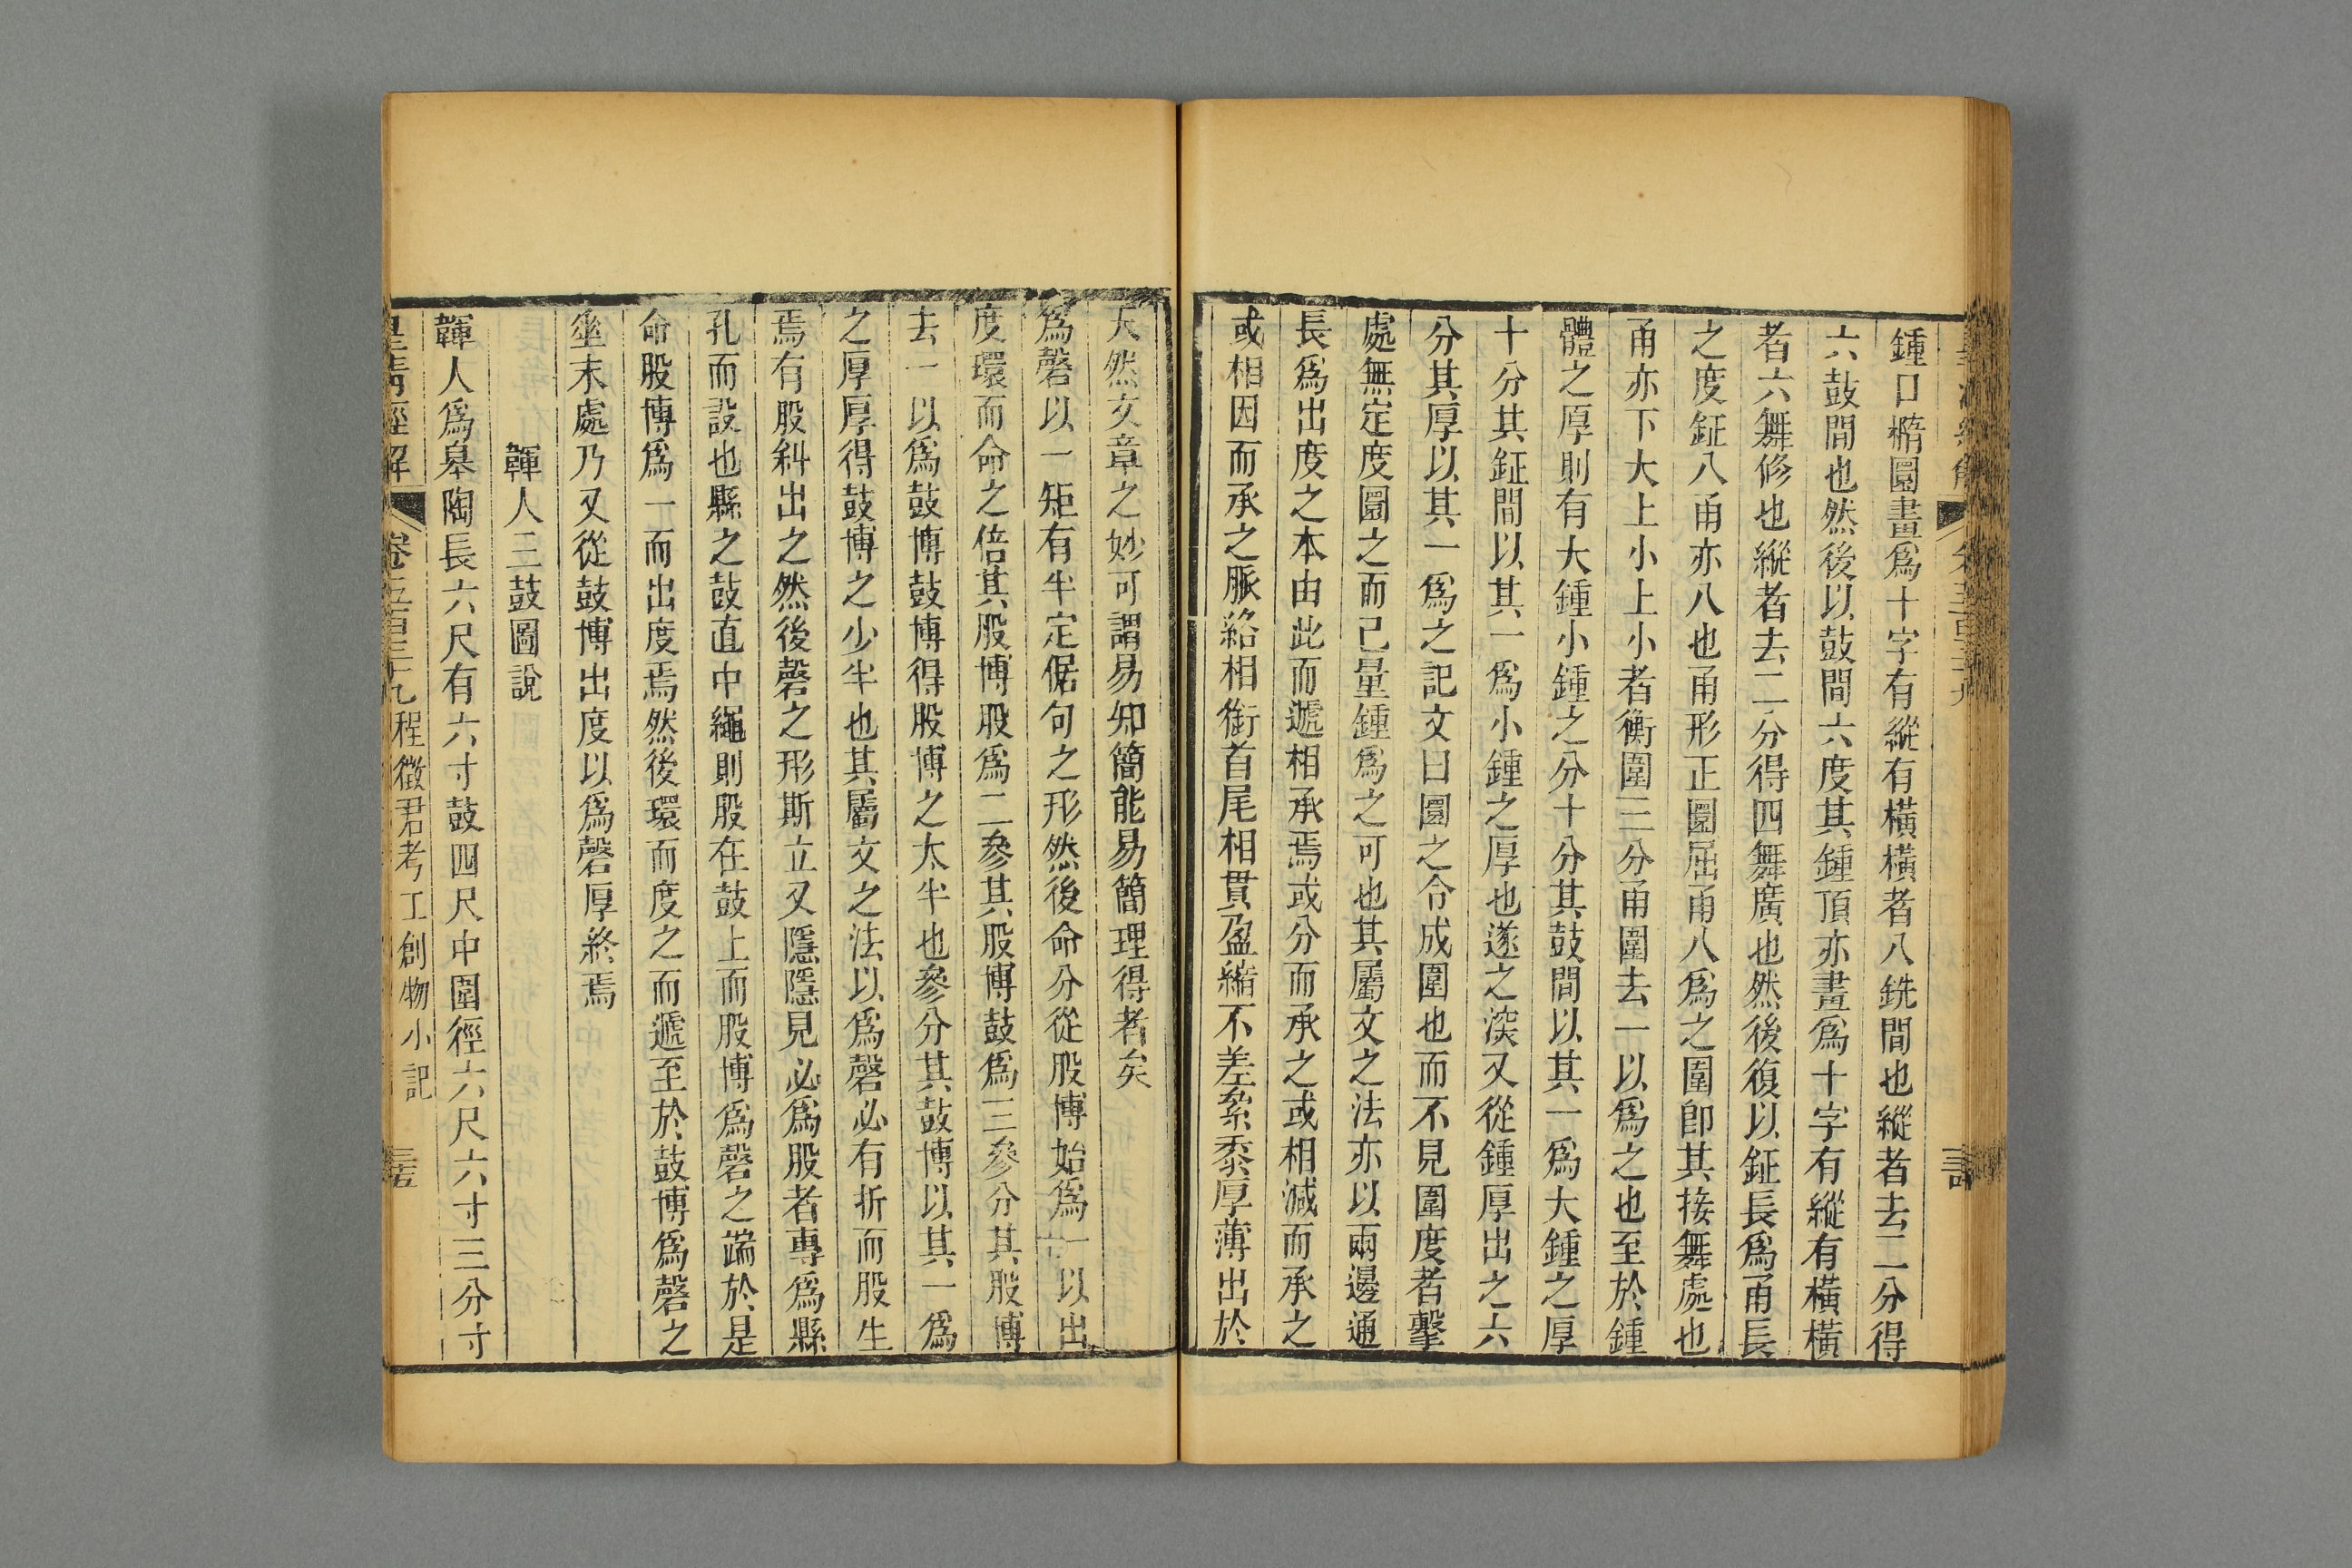 鍾口橢圜畫爲十字有縱有橫橫者八銑間也縱者去二分得
六鼓間也然後以鼓間六度其鍾頂亦畫爲十字有縱有橫橫
者六舞修也縱者去二分得四舞廣也然後復以鉦長爲甬長
之度鉦八甬亦八也甬形正圜屈甬八爲之圍卽其接舞處也
甬亦下大上小上小者衡圍三分甬圍去一以爲之也至於鍾
體之厚則有大鍾小鍾之分十分其鼓間以其一爲大鍾之厚
十分其鉦間以其一爲小鍾之厚也遂之深又從鍾厚出之六
分其厚以其一爲之記文曰圜之令成圍也而不見圍度者擊
處無定度圜之而已量鍾爲之可也其屬文之法亦以兩邊通
長爲出度之本由此而遞相承焉或分而承之或相減而承之
或相因而承之脈絡相銜首尾相貫盈縮不差絫黍厚薄出於
天然文章之妙可謂易知簡能易簡理得者矣
爲磬以一矩有半定倨句之形然後命分從股博始爲一以出
度環而命之倍其股博股爲二參其股博鼓爲三參分其股博
去一以爲鼓博鼓博得股博之太半也參分其鼓博以其一爲
之厚厚得鼓博之少半也其屬文之法以爲磬必有折而股生
焉有股糾出之然後磬之形斯立又隱隱見必爲股者專爲縣
孔而設也縣之鼓直中繩則股在鼓上而股博爲磬之端於是
命股博爲一而出度焉然後環而度之而遞至於鼓博爲磬之
㘴末處乃又從鼓博出度以爲磬厚終焉
韗人三鼓圖說
韗人爲皋陶長六尺有六寸鼓四尺中圍徑六尺六寸三分寸
皇淸經解 卷五百三十九 程徵君考工創物小記